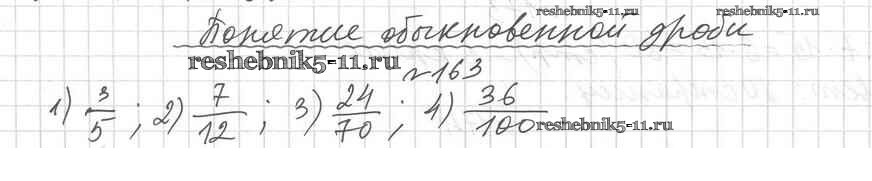 reshebnik5-11.ru reshebnik5-11.ru
Понятие обыкновенной дроби
reshebnik5-11.ru №163
1) 3/5 ; 2) 7/12 ; 3) 24/70 ; 4) 36/100 reshebnik5-11.ru